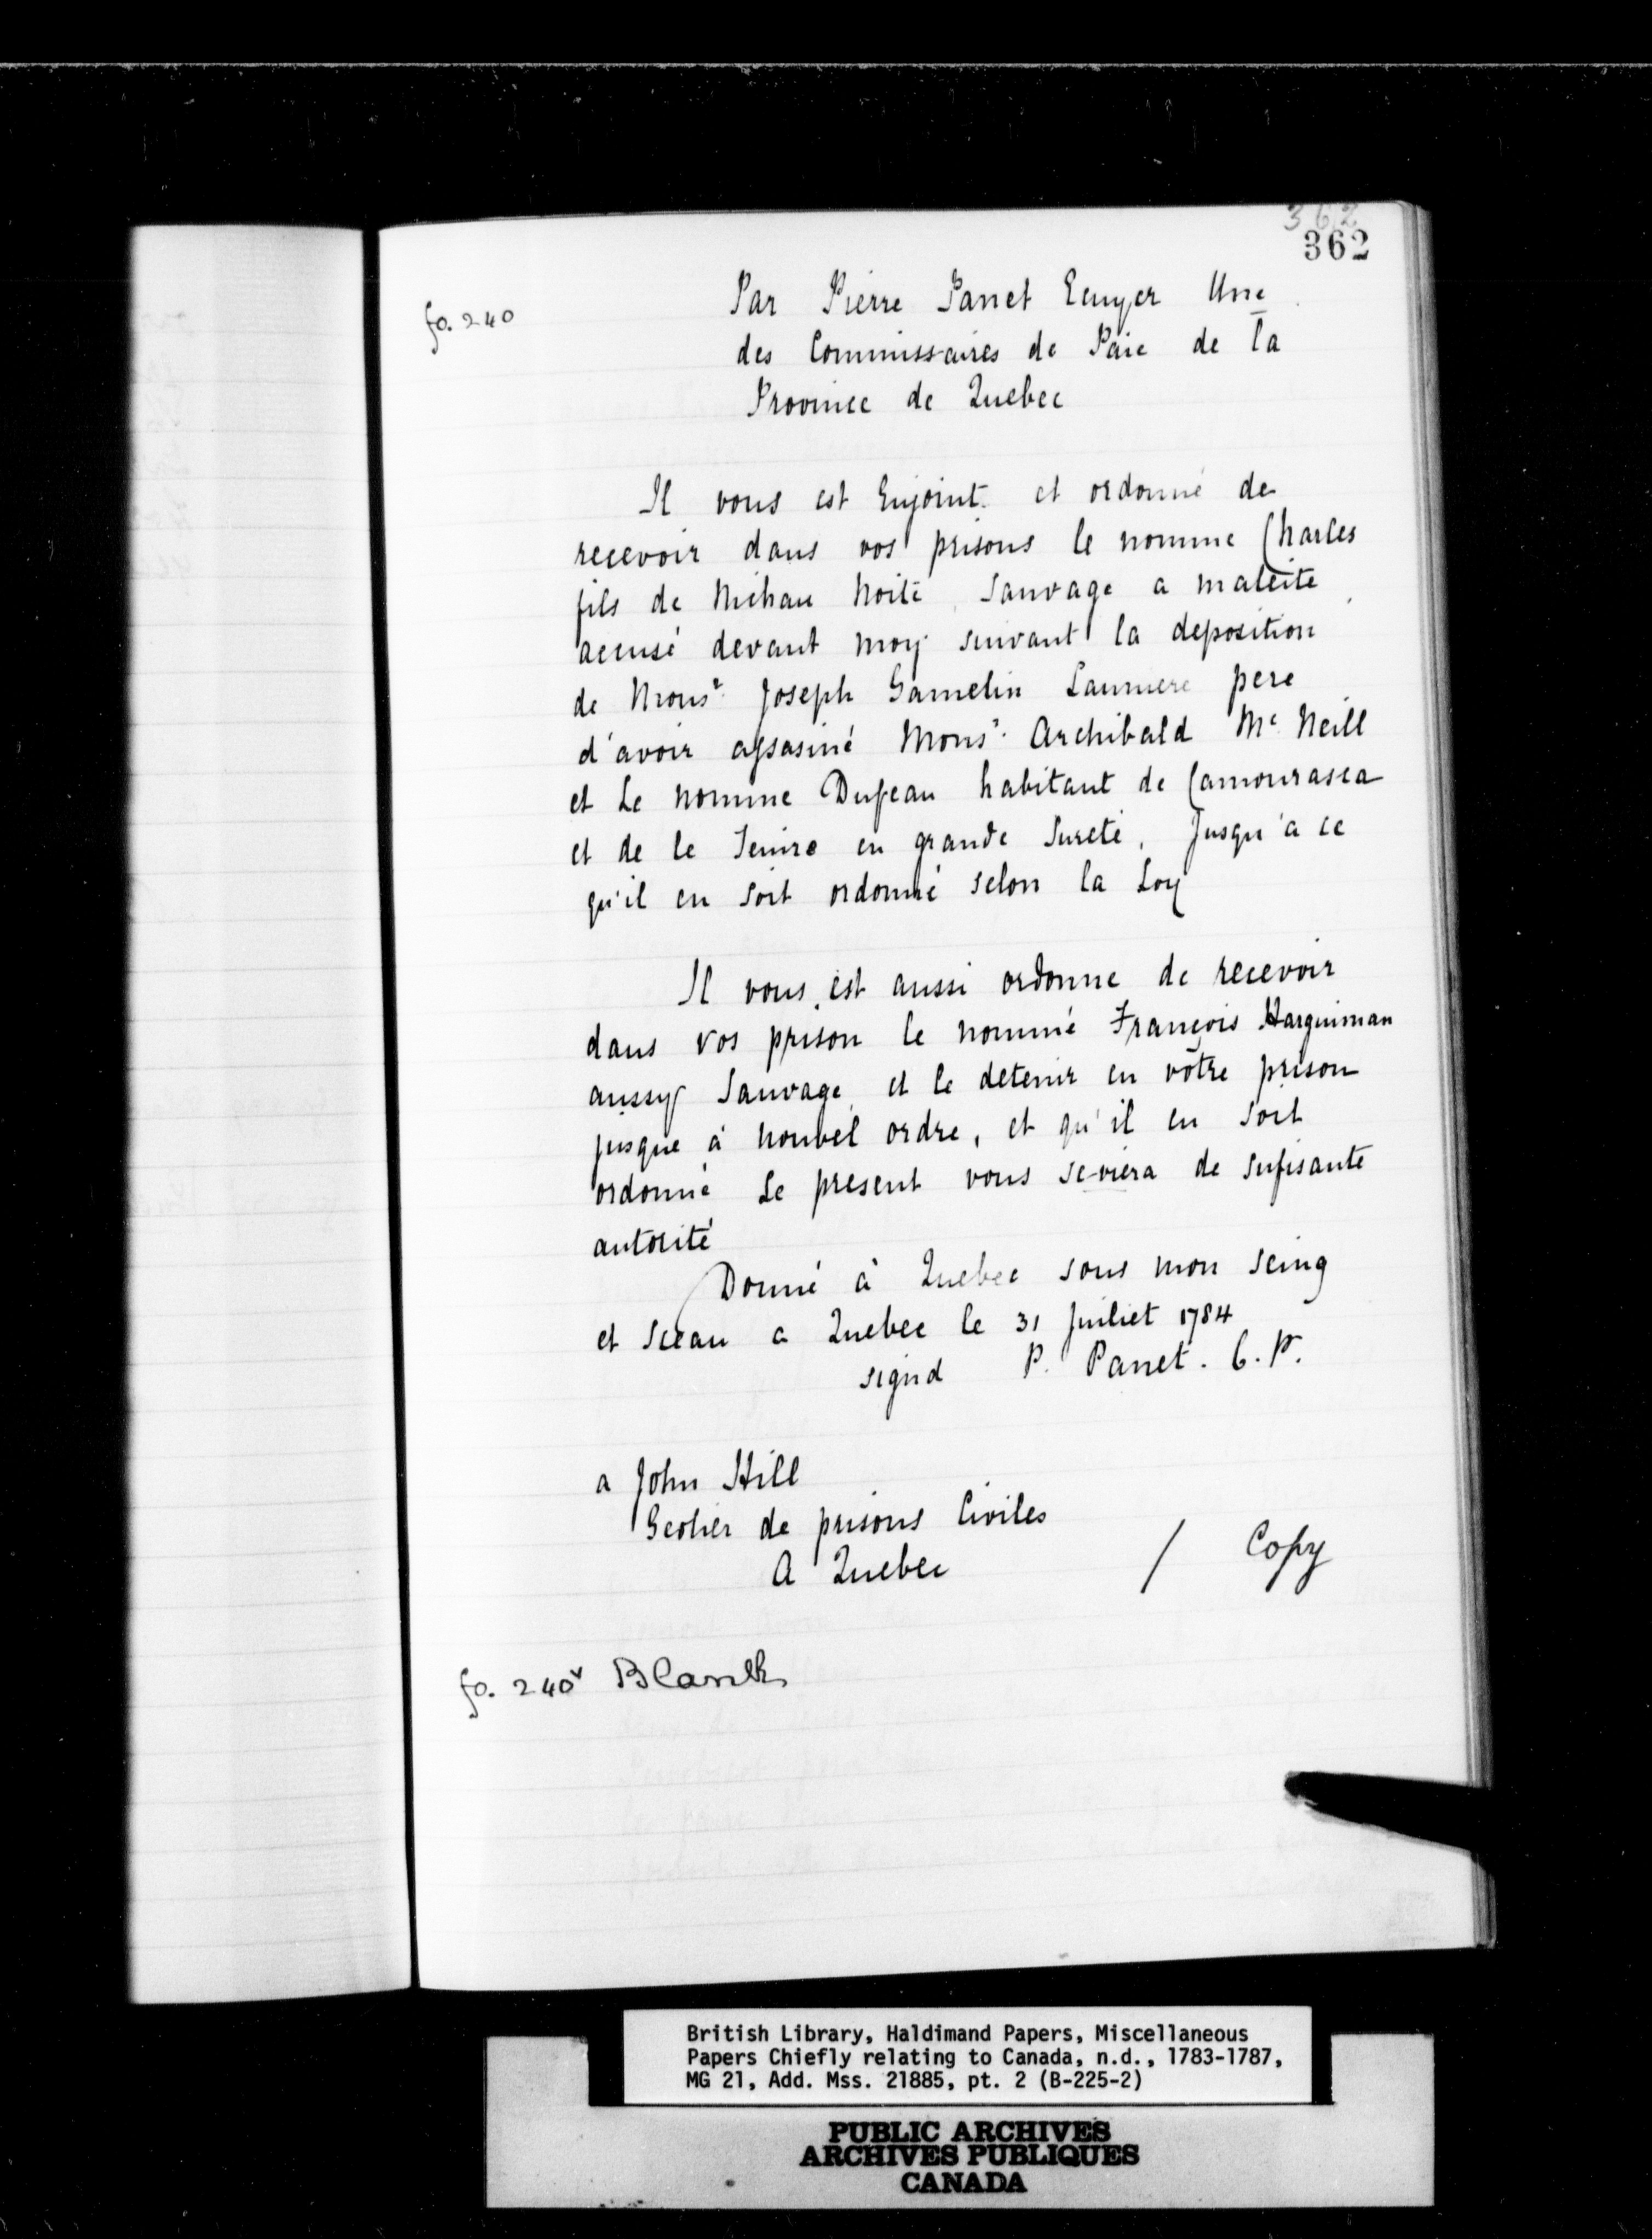 362
362
fo. 240
Par Pierre Panet Ecuyer Une
des Commissaires de Paie de la
Province de Quebec
Il vous est Enjoint et ordonné de
recevoir dans vos prisons le nomme Charles
fils de Nichau Noite Sauvage a maleite
accusé devant moy suivant la deposition
de Monsr Joseph Gamelin Launiere pere
d'avoir assasiné Monsr Archibald Mc Neill
et Le nomme Dufeau habitant de Camourasca
et de le Tenire en grande Sureté, Jusqu'a ce
qu'il en soit ordonné selon la Loy
Il vous est aussi ordonne de recevoir
dans vos prison le nommé François Harguiman
aussy Sauvage et le detenir en vôtre prison
jusque à nouvel ordre, et qu'il en soit
ordonné Le present vous seviera de sufisante
autorité
Donné à Quebec sous mon seing
et Sceau a Quebec le 31 Juiliet 1784
signd P. Panet. C. P.
a John Hill
Geolier de prisons Civiles
A Quebec / Copy
fo. 240v Blank
British Library, Haldimand Papers, Miscellaneous
Papers Chiefly relating to Canada, n.d., 1783-1787,
MG 21, Add. Mss. 21885, pt. 2 (B-225-2)
PUBLIC ARCHIVES
ARCHIVES PUBLIQUES
CANADA